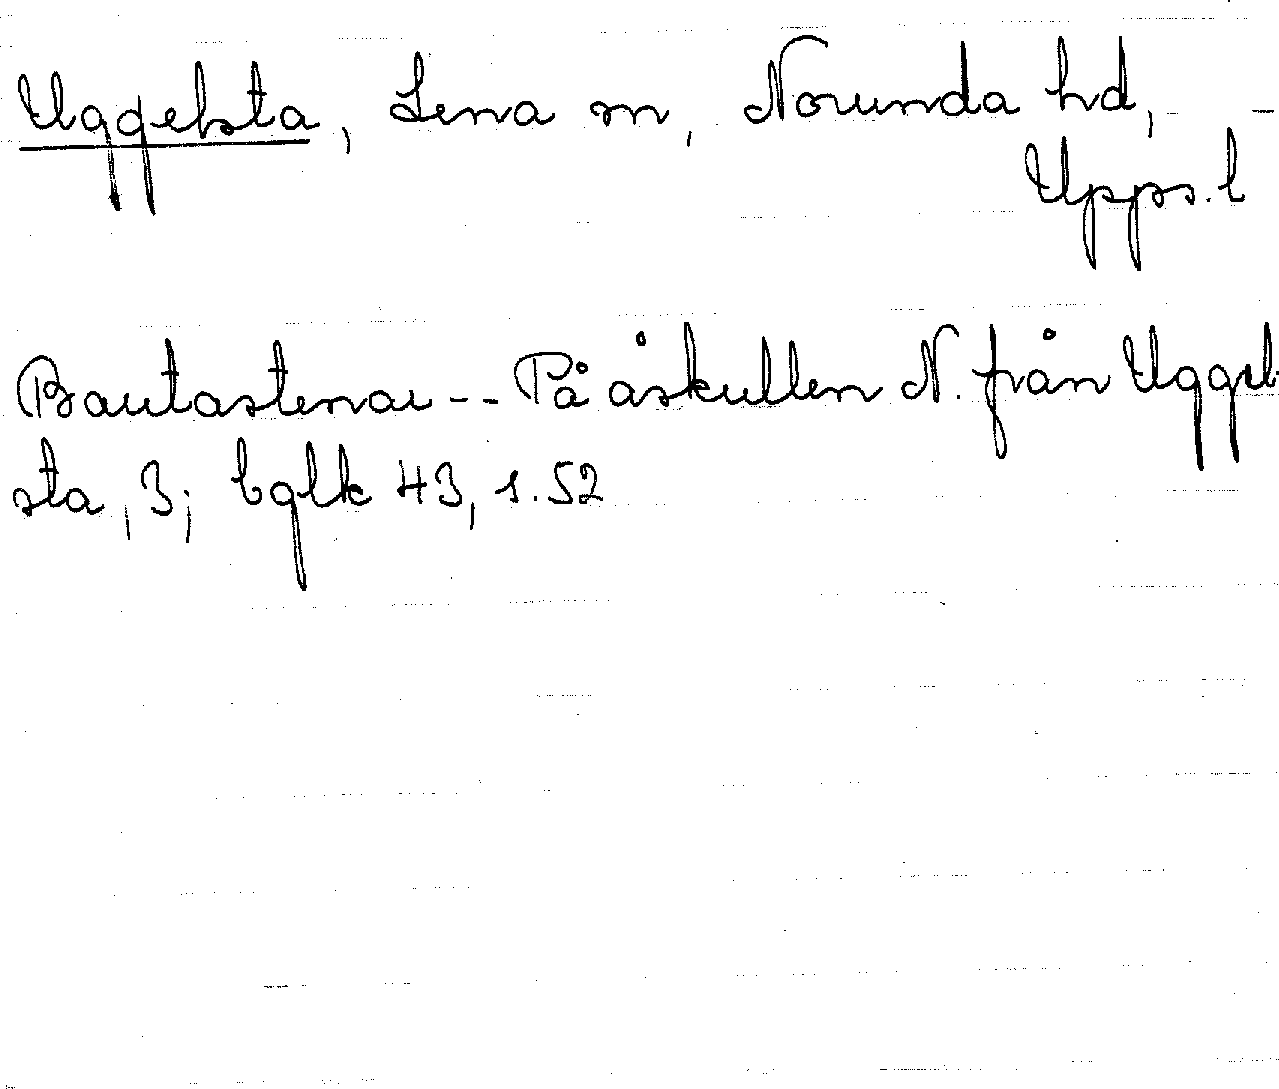 Uggelsta, Lena sn, Norunda hd,
Upps. l
Bautastenar -- På åskullen N. från Uggel-
sta, 3; bglk 43, s. 52